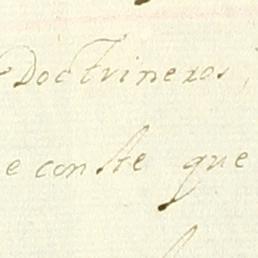 Doctrineros,
e conste que